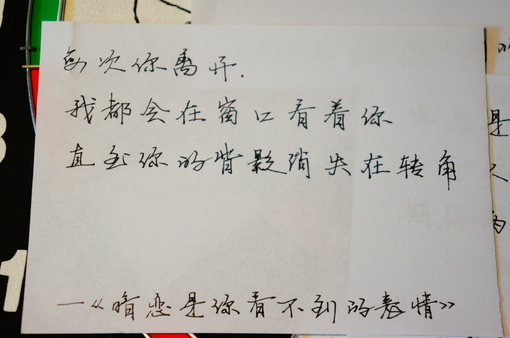 每次你离开.
我都会在窗口看着你
直到你的背影消失在转角
—《暗恋是你看不到的表情》
是
人